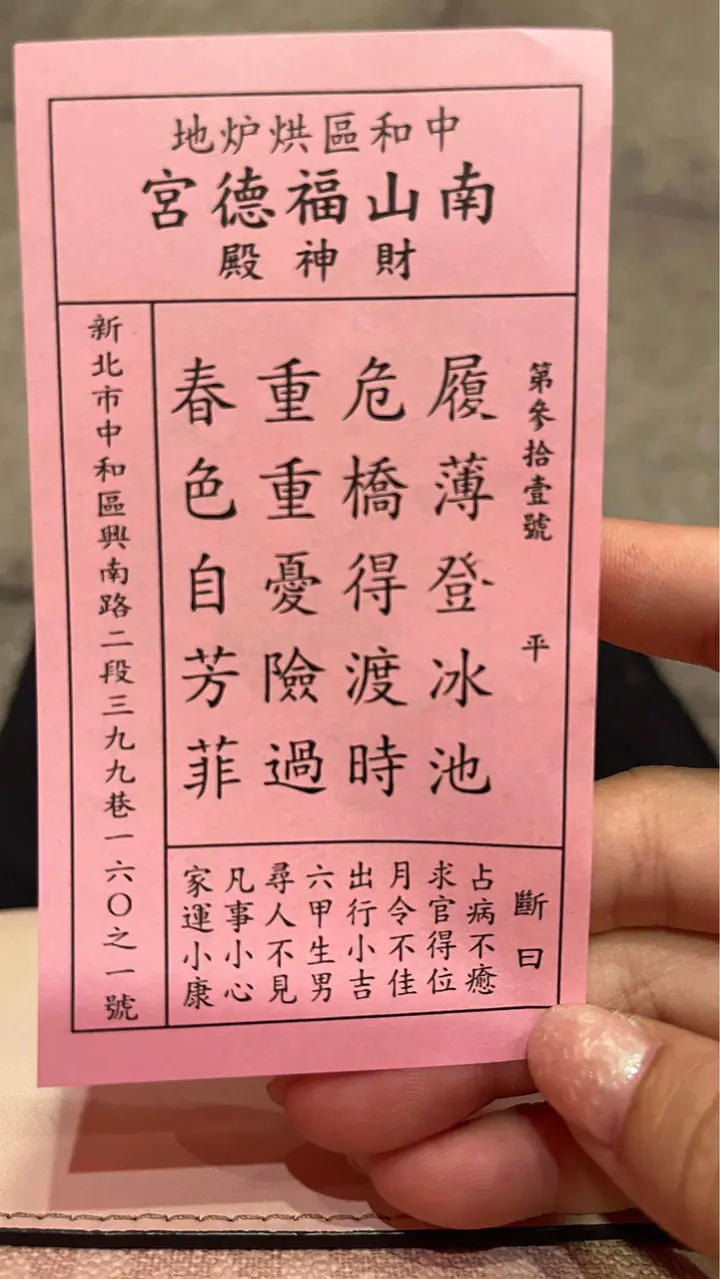 中和區烘炉地
南山福德宮
財神殿
第參拾壹號 平
履薄登冰池
危橋得渡時
重重憂險過
春色自芳菲
斷曰
占病不癒
求官得位
月令不佳
出行小吉
六甲生男
尋人不見
凡事小心
家運小康
新北市中和區興南路二段三九九巷一六〇之一號